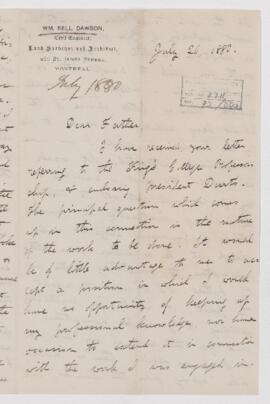 WM. BELL DAWSON,
Civil Engineer,
Land Surveyor and Architect,
St. James Street,
MONTREAL.
July 26, 1880.
July 1880
Dear Father
I have received your letter
referring to the King's College Professor-
ship, & enclosing president Dart's.
The principal question which comes
up in this connection is the nature
of the work to be done. It would
be of little advantage to me to ac-
cept a position in which I would
have no opportunity of keeping up
my professional knowledge, nor have
occasion to extend it in connection
with the work I was engaged in.